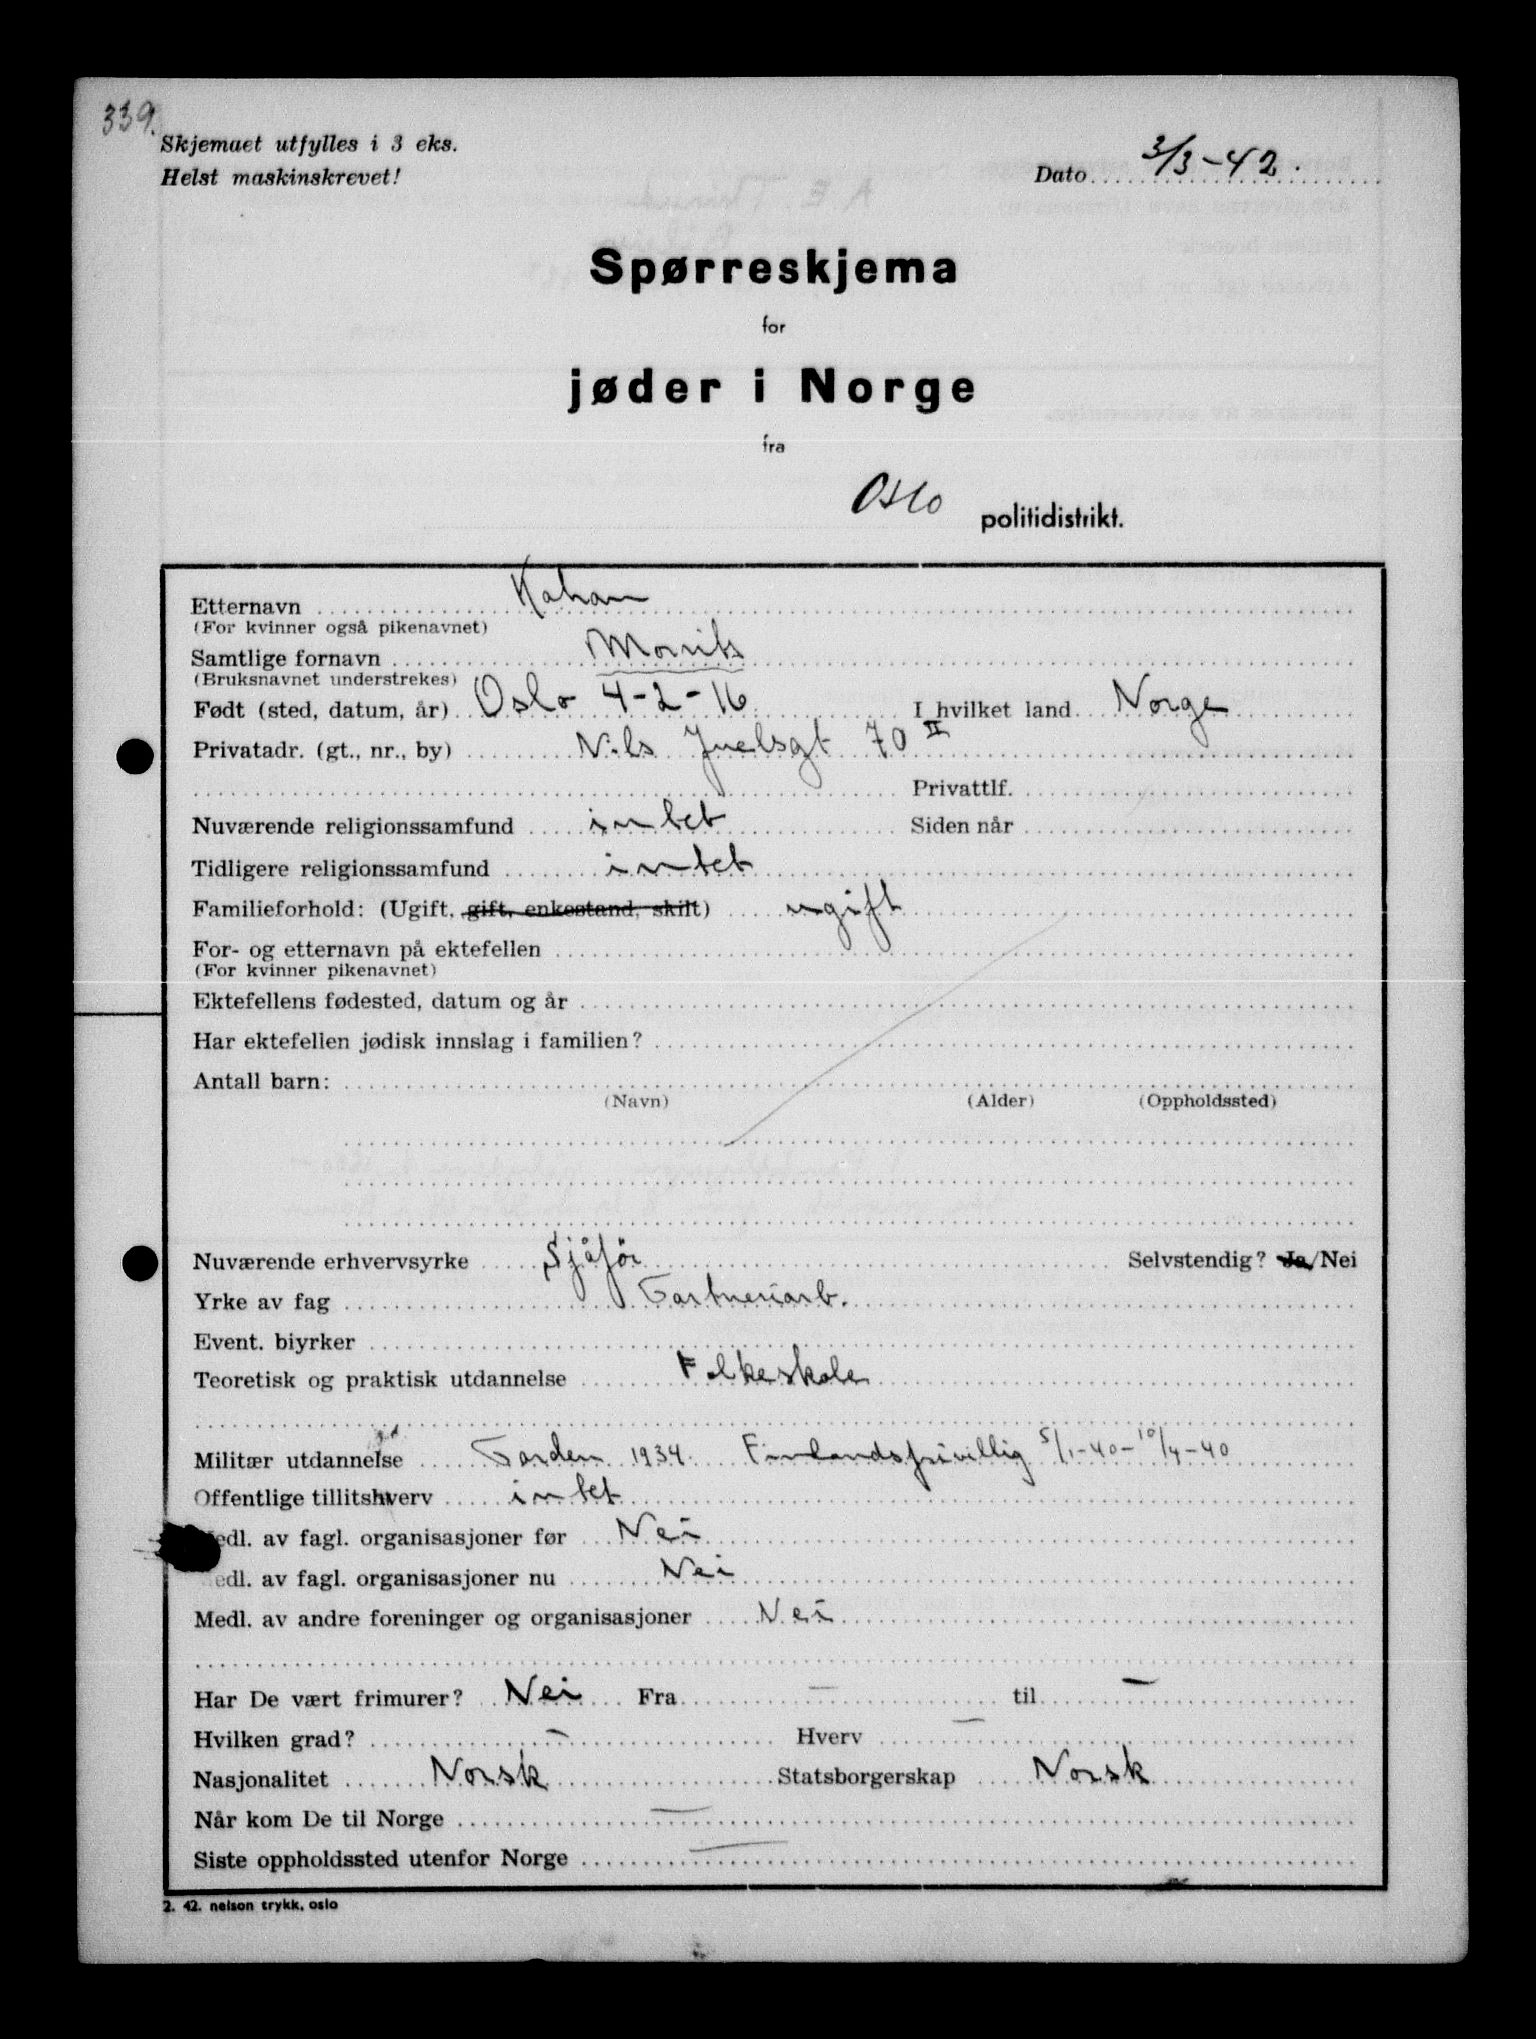 339.
Skjemaet utfylles i 3 eks.
Helst maskinskrevet!
Dato 3/3-42.
Spørreskjema
for
jøder i Norge
fra
Oslo politidistrikt.
Etternavn Kahan
(For kvinner også pikenavnet)
Samtlige fornavn Morits
(Bruksnavnet understrekes)
Født (sted, datum, år) Oslo 4-2-16 I hvilket land Norge
Privatadr. (gt., nr., by) Nils Juelsgt 70 II
Privattlf.
Nuværende religionssamfund intet Siden når
Tidligere religionssamfund intet
Familieforhold: (Ugift, gift, enkestand, skilt) ugift
For- og etternavn på ektefellen
(For kvinner pikenavnet)
Ektefellens fødested, datum og år
Har ektefellen jødisk innslag i familien?
Antall barn:
(Navn) (Alder) (Oppholdssted)
Nuværende erhvervsyrke Sjåfør Selvstendig? Ja/Nei
Yrke av fag Gartneriarb.
Event. biyrker
Teoretisk og praktisk utdannelse Folkeskole
Militær utdannelse Garden 1934. Finlandsfrivillig 5/1-40-10/4-40
Offentlige tillitshverv intet
Medl. av fagl. organisasjoner før Nei
Medl. av fagl. organisasjoner nu Nei
Medl. av andre foreninger og organisasjoner Nei
Har De vært frimurer? Nei Fra - til -
Hvilken grad? - Hverv -
Nasjonalitet Norsk Statsborgerskap Norsk
Når kom De til Norge -
Siste oppholdssted utenfor Norge -
2. 42. nelson trykk, oslo